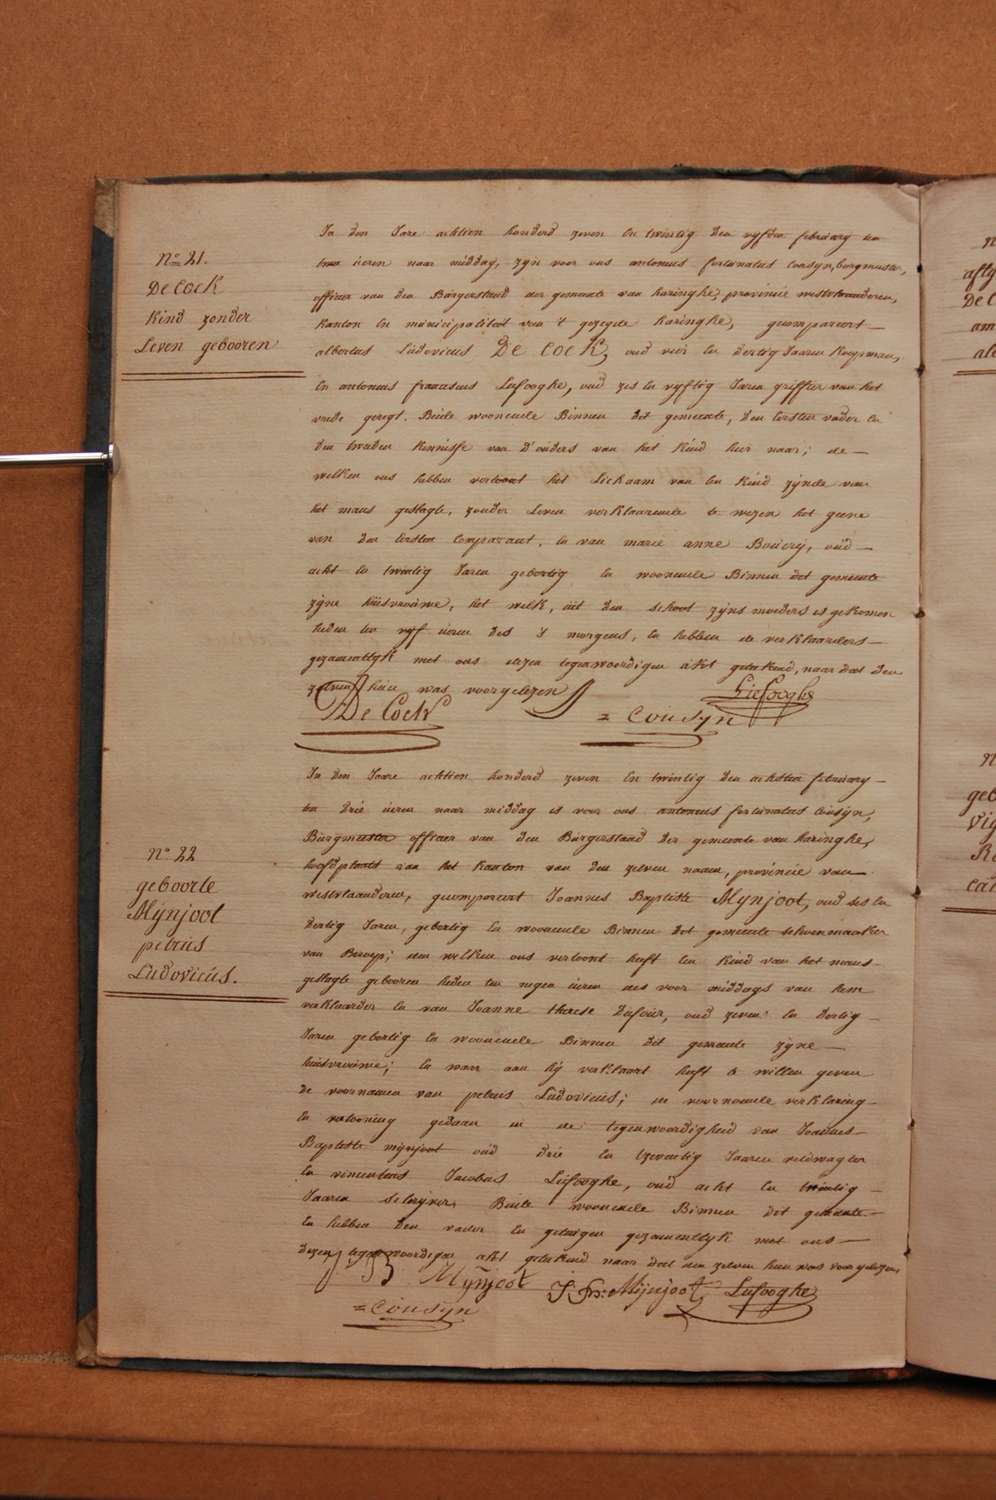 No 21.
De Cock
Kind zonder
Leven gebooren
In den Jare achtien honderd zeven en twintig den vyfden february ten
twee ueren naar middag, zyn voor ons antonius fortunatus Cousyn, burgmeester,
officier van den Burgerstand der gemeente van haringhe, provincie westvlaanderen,
kanton en municipaliteit van 't gezegde haringhe, gecompareert
albertus Ludovicus De Cock, oud vier en dertig Jaaren Koopman,
en antonius franciscus Liefooghe, oud zes en vyftig Jaren griffier van het
vrede geregt. Beide woonende Binnen dit gemeente, den eersten vader en
den tweeden kennisse van d'ouders van het kind hier naar; de
welken ons hebben vertoont het Lichaam van een kind zynde van
het mans geslagte, zonder Leven verklaarende te wezen het geene
van den eersten Comparant, en van marie anne Bouery, oud
acht en twintig Jaren gebortig en woonende Binnen dit gemeente
zyne huisvrouwe, het welk, uit den schoot zyns moeders is gekomen
heden ten vyf ueren des 's morgens, en hebben de verklaarders
gezamentlyk met ons dezen tegenwoordigen akt geteekend, naar dat den
zelven hun was voorgelezen
De Cock = Cousyn Liefooghe
No 22
geboorte
Mynjoot
petrus
Ludovicus.
In den Jare achtien honderd zeven en twintig den achsten february
ten drie ueren naar middag is voor ons antonius fortunatus Cousyn,
Burgmeester officier van den Burgerstand der gemeente van haringhe,
hoofdplaats van het kanton van den zelven naam, provincie van
westvlaanderen, gecompareert Joannes Baptiste Mynjoot, oud ses en
dertig Jaren, gebortig en woonende Binnen dit gemeente schoenmaaker
van Beroep; den welken ons vertoont heeft een kind van het mans
geslagte gebooren heden ten negen ueren des voor middags van hem
verklaarder en van Joanne therese Dufour, oud zeven en dertig
Jaren gebortig en woonende Binnen dit gemeente zyne
huisvrouwe; en waar aan hy verklaart heeft te willen geven
de voornamen van petrus Ludovicus; de voornoemde verklaring
en vertooning gedaan in de tegenwoordigheid van Joannes
Baptiste mynjoot oud drie en tzeventig Jaaren veldwagter
en vincentius Jacobus Liefooghe, oud acht en twintig
Jaaren schryver, Beide woonende Binnen dit gemeente
en hebben den vader en getuigen gezamentlyk met ons
dezen tegenwoordigen akt geteekend naar dat den zelven hun was voorgelezen
J B Mynjoot J. Bs: Mynjoot Liefooghe
= Cousyn